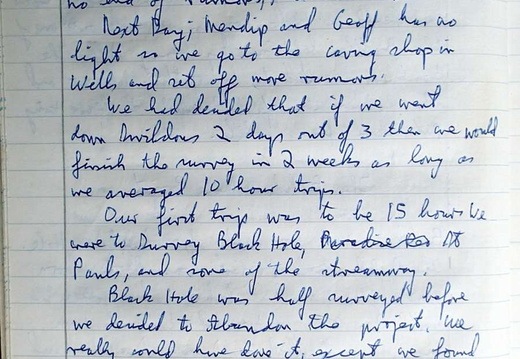 no end of rumours,
Next Day; Mendip and Geoff has no
light so we go to the caving shop in
Wells and set off more rumours.
We had decided that if we went
down Swildons 2 days out of 3 then we would
finish the survey in 2 weeks as long as
we averaged 10 hour trips.
Our first trip was to be 15 hours We
were to Survey Black Hole, Paradise Res St
Pauls, and some of the streamway.
Black Hole was half surveyed before
we decided to Abandon the project, we
really could have done it, except we found